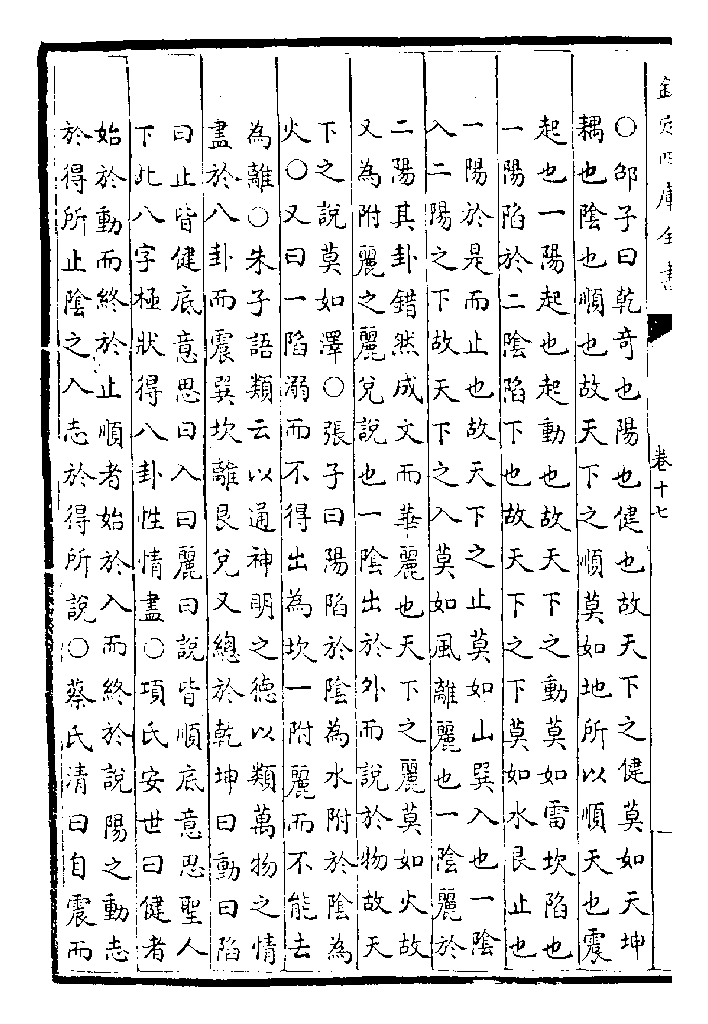 欽定四庫全書
卷十七
○邵子曰乾奇也陽也健也故天下之健莫如天坤
耦也陰也順也故天下之順莫如地所以順天也震
起也一陽起也起動也故天下之動莫如雷坎陷也
一陽陷於二陰陷下也故天下之下莫如水艮止也
一陽於是而止也故天下之止莫如山巽入也一陰
入二陽之下故天下之入莫如風離麗也一陰麗於
二陽其卦錯然成文而華麗也天下之麗莫如火故
又為附麗之麗兌說也一陰出於外而說於物故天
下之說莫如澤○張子曰陽陷於陰為水附於陰為
火○又曰一陷溺而不得出為坎一附麗而不能去
為離○朱子語類云以通神明之德以類萬物之情
盡於八卦而震巽坎離艮兌又總於乾坤曰動曰陷
曰止皆健底意思曰入曰麗曰說皆順底意思聖人
下此八字極狀得八卦性情盡○項氏安世曰健者
始於動而終於止順者始於入而終於說陽之動志
於得所止陰之入志於得所說○蔡氏清曰自震而